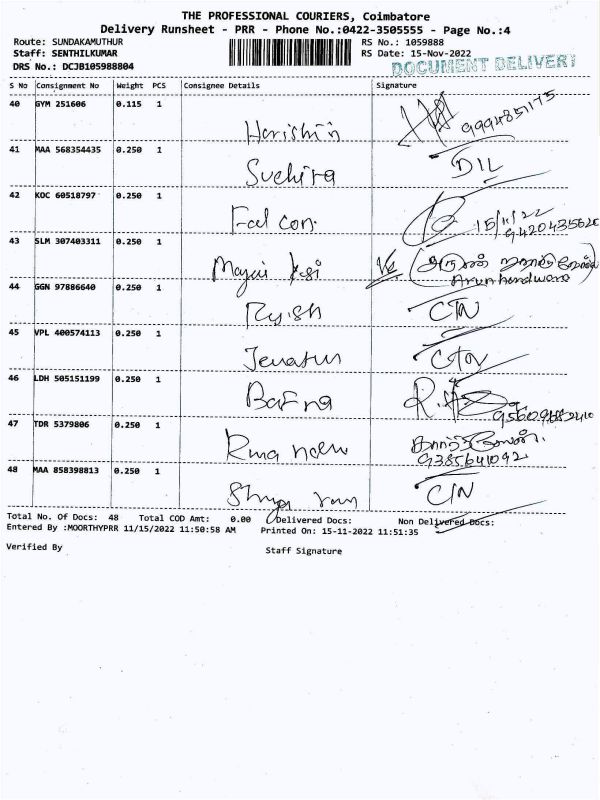 THE PROFESSIONAL COURIERS, Coimbatore
Delivery Runsheet - PRR - Phone No.:0422-3505555 - Page No.:4
Route: SUNDAKAMUTHUR RS No.: 1059888
Staff: SENTHILKUMAR RS Date: 15-Nov-2022
DRS No.: DCJB105988804 DOCUMENT DELIVERY
S No Consignment No Weight PCS Consignee Details Signature
40 GYM 251606 0.115 1
41 MAA 568354435 0.250 1 Suchira DIL
42 KOC 60518797 0.250 1 Falcon 15/11/22
43 SLM 307403311 0.250 1
Arun hardware
44 GGN 97886640 0.250 1 CTN
45 VPL 400574113 0.250 1
46 LDH 505151199 0.250 1 Bafna
47 TDR 5379806 0.250 1
9385641092
48 MAA 858398813 0.250 1 CTN
Total No. Of Docs: 48 Total COD Amt: 0.00 Delivered Docs: Non Delivered Docs:
Entered By :MOORTHYPRR 11/15/2022 11:50:58 AM Printed On: 15-11-2022 11:51:35
Verified By Staff Signature